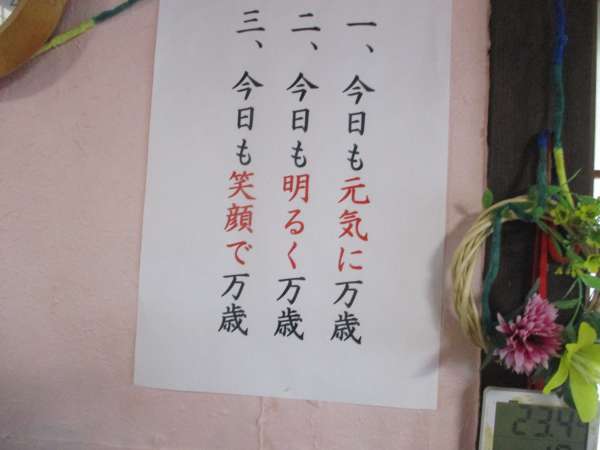 一、今日も元気に万歳
二、今日も明るく万歳
三、今日も笑顔で万歳
23.4